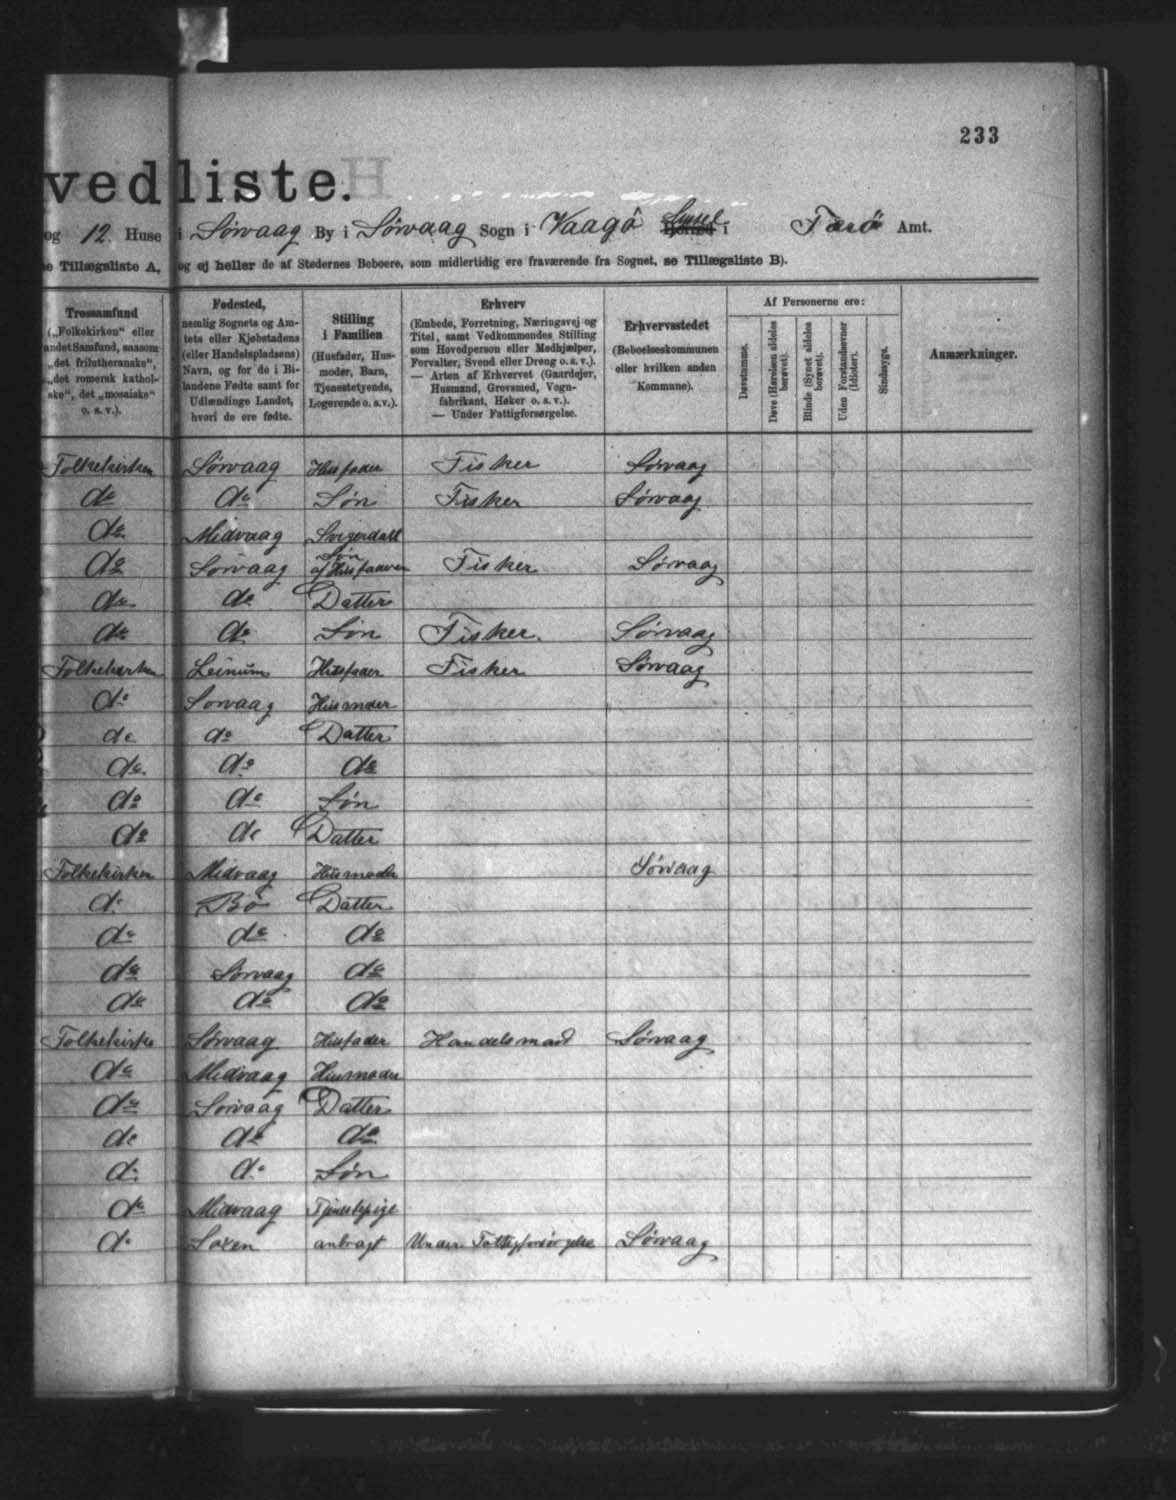 233
vedliste.
og 12 Huse i Sørvaag By i Sørvaag Sogn i Vaagø Syssel Herred i Færö Amt.
e Tillægsliste A, og ej heller de af Stedernes Beboere, som midlertidig ere fraværende fra Sognet, se Tillægsliste B).
Trossamfund
(„Folkekirken“ eller
andet Samfund, saasom
„det frilutheranske“,
„det romersk kathol-
ske“, det „mosaiske“
o. s. v.).
Fødested,
nemlig Sognets og Am-
tets eller Kjøbstadens
(eller Handelspladsens)
Navn, og for de i Bi-
landene Fødte samt for
Udlændinge Landet,
hvori de ere fødte.
Stilling
i Familien
(Husfader, Hus-
moder, Barn,
Tjenestetyende,
Logerende o. s. v.).
Erhverv
(Embede, Forretning, Næringsvej og
Titel, samt Vedkommendes Stilling
som Hovedperson eller Medhjælper,
Forvalter, Svend eller Dreng o. s. v.).
— Arten af Erhvervet (Gaardejer,
Husmand, Grovsmed, Vogn-
fabrikant, Høker o. s. v.).
— Under Fattigforsørgelse.
Erhvervsstedet
(Beboelseskommunen
eller hvilken anden
Kommune).
Af Personerne ere:
Døvstumme.
Døve (Hørelsen aldeles
berøvet).
Blinde (Synet aldeles
berøvet).
Uden Forstandsevner
(Idioter).
Sindssyge.
Anmærkninger.
Folkekirken Sørvaag Husfader Fisker Sørvaag
do do Søn Fisker Sørvaag
do Midvaag Svigerdatt
do Sørvaag Søn af Husfaderen Fisker Sørvaag
do do Datter
do do Søn Fisker. Sørvaag
Folkekirken Leinum Husfader Fisker Sørvaag
do Sørvaag Husmoder
do do Datter
do. do do
do do Søn
do do Datter
Folkekirken Midvaag Husmoder Sørvaag
do Bö Datter
do do do
do Sørvaag do
do do do
Folkekirke Sørvaag Husfader Handelsmand Sørvaag
do Midvaag Husmoder
do Sørvaag Datter
do do do
do do Søn
do Midvaag Tjenestepige
do Saxen anbragt Under Fattigforsørgelse Sørvaag